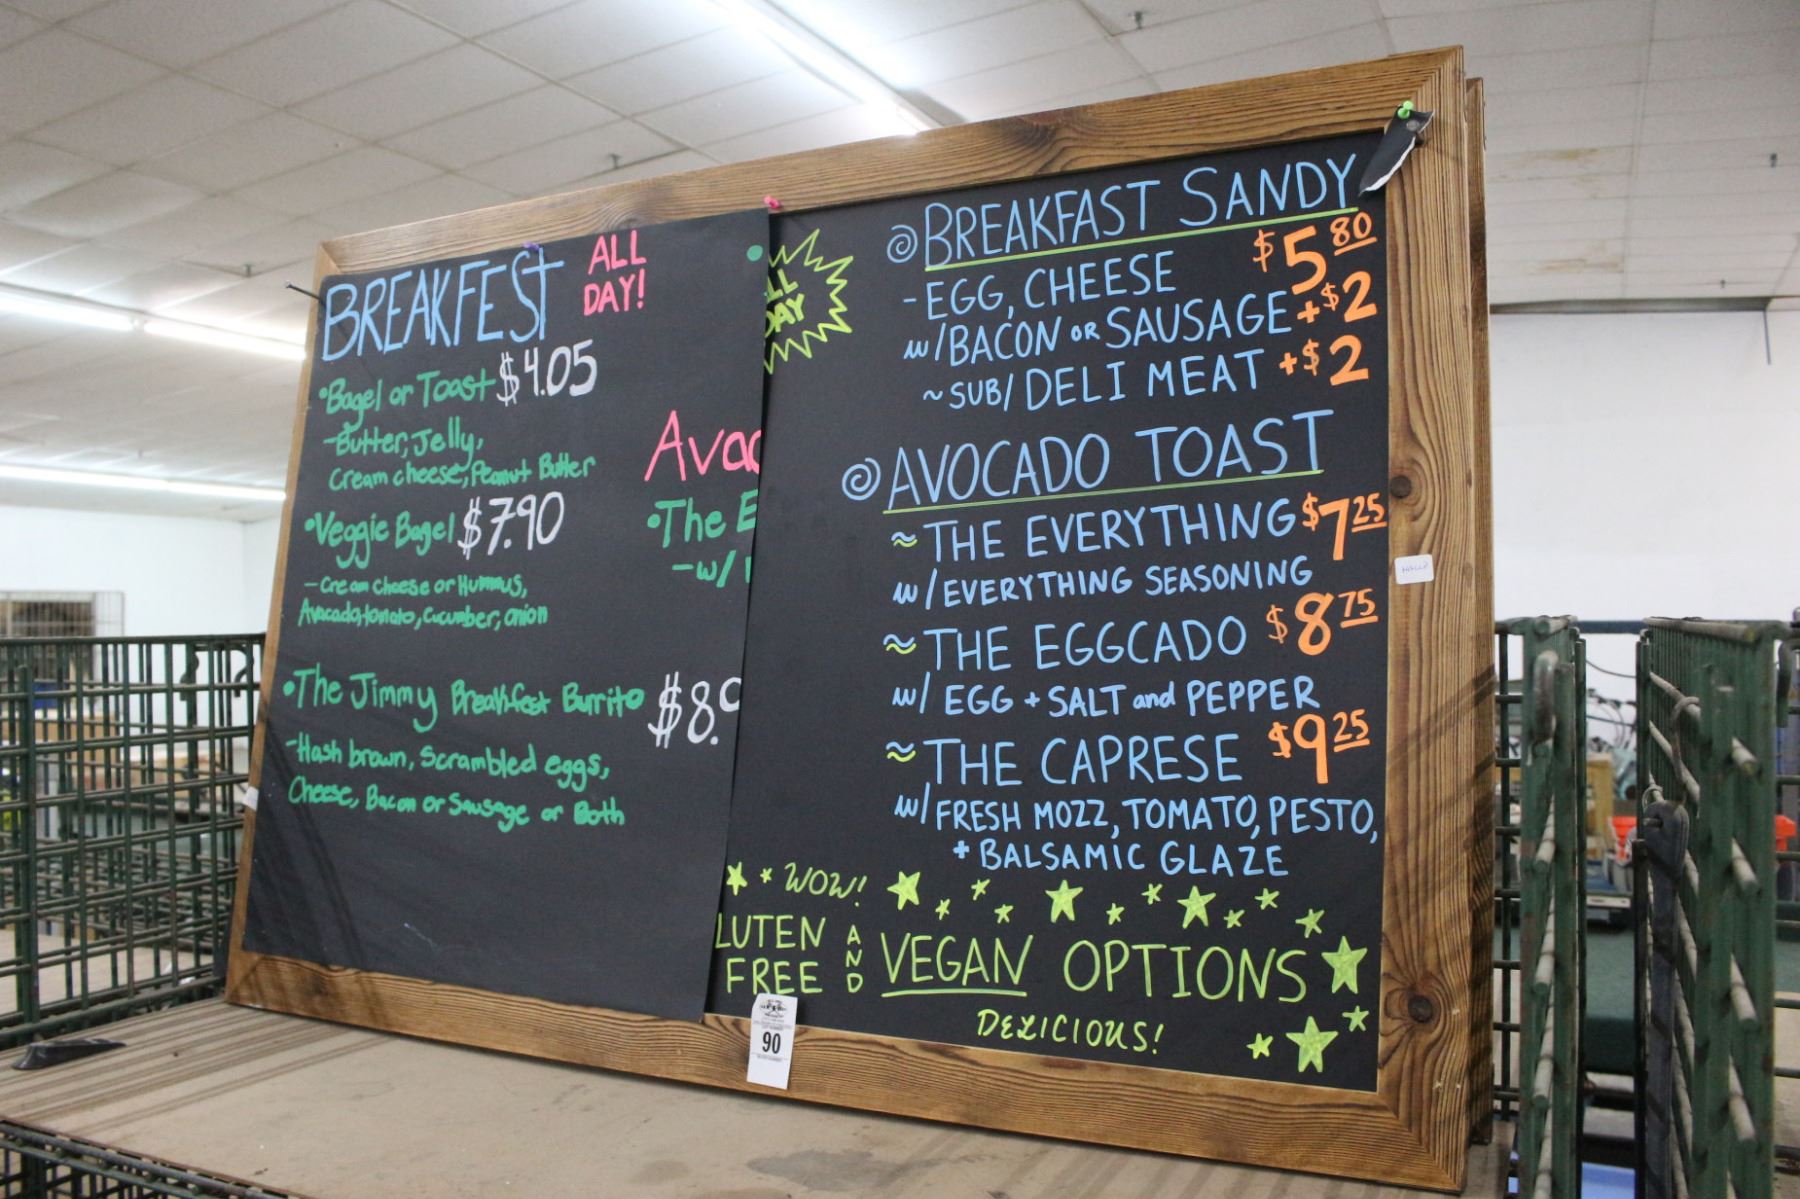 BREAKFEST
ALL
DAY!
•Bagel or Toast $4.05
-Butter, Jelly,
Cream cheese, Peanut Butter
•Veggie Bagel $7.90
-Cream cheese or Hummus,
Avacado, tomato, cucumber, onion
•The Jimmy Breakfest Burrito $8.
-Hash brown, Scrambled eggs,
Cheese, Bacon or Sausage or Both
Avac
•The E
-w/
LL
DAY
BREAKFAST SANDY
-EGG, CHEESE $5 80
w/BACON OR SAUSAGE +$2
~SUB/ DELI MEAT +$2
AVOCADO TOAST
≈THE EVERYTHING $7 25
w/EVERYTHING SEASONING
≈THE EGGCADO $8 75
w/ EGG + SALT and PEPPER
≈THE CAPRESE $9 25
w/FRESH MOZZ, TOMATO, PESTO,
+ BALSAMIC GLAZE
WOW!
LUTEN
FREE
AND
VEGAN OPTIONS
DELICIOUS!
90